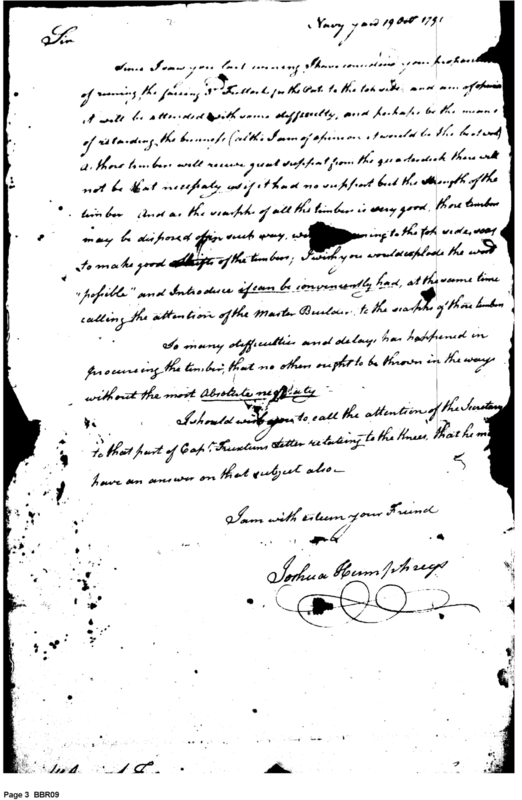 Navy yard 19 Oct 179
Sir
Since I saw you last evening, I have considered your
of running the facing 3rd Futtock, in the Oak to the  side, and am of opinion
it will be attended with some difficulty, and perhaps be the means
of retarding the business (altho I am of opinion it would be the best
as those timbers will receive great support from the quarterdeck there will
not be that necessity as if it had no support but the strength of the
timber. And as the scarphs of all the timber is very good, those timbers
may be disposed of in such way, to the side,
to make good Shifts of the timbers; I wish you would explode the word
"possible" and Introduce if can be conveniently had, at the same time
calling the attention of the Master Builder, to the scarphs of those timbers
So many difficulties and delays has happened in
procuring the timber, that no others ought to be thrown in the way
without the most Absolute necessity
I should wish you to call the attention of the Secretary
to that part of Capt. Truxtuns Letter relating to the Knees, that he
have an answer on that subject also
I am with esteem your Friend
Joshua Humphreys
Page 3 BBR09